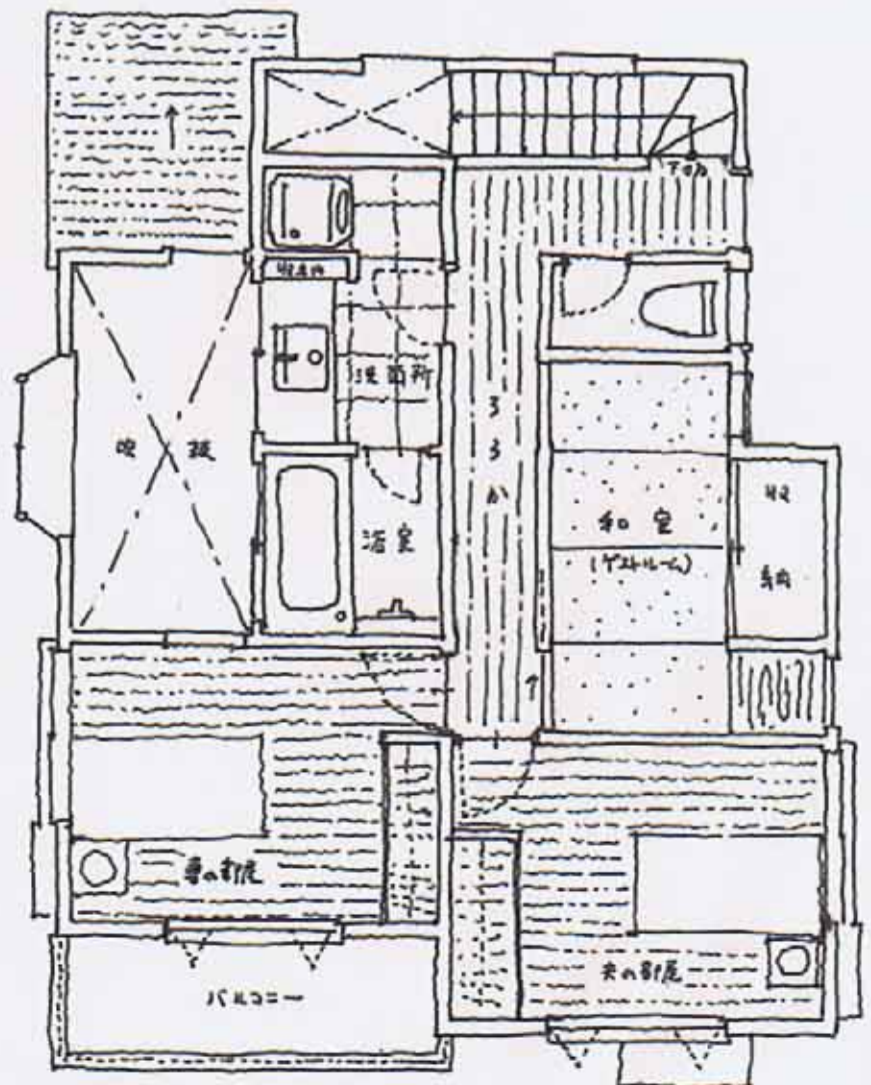 収納
洗面所
ろうか
吹抜
浴室
和室
(ゲストルーム)
収納
妻の部屋
夫の部屋
バルコニー